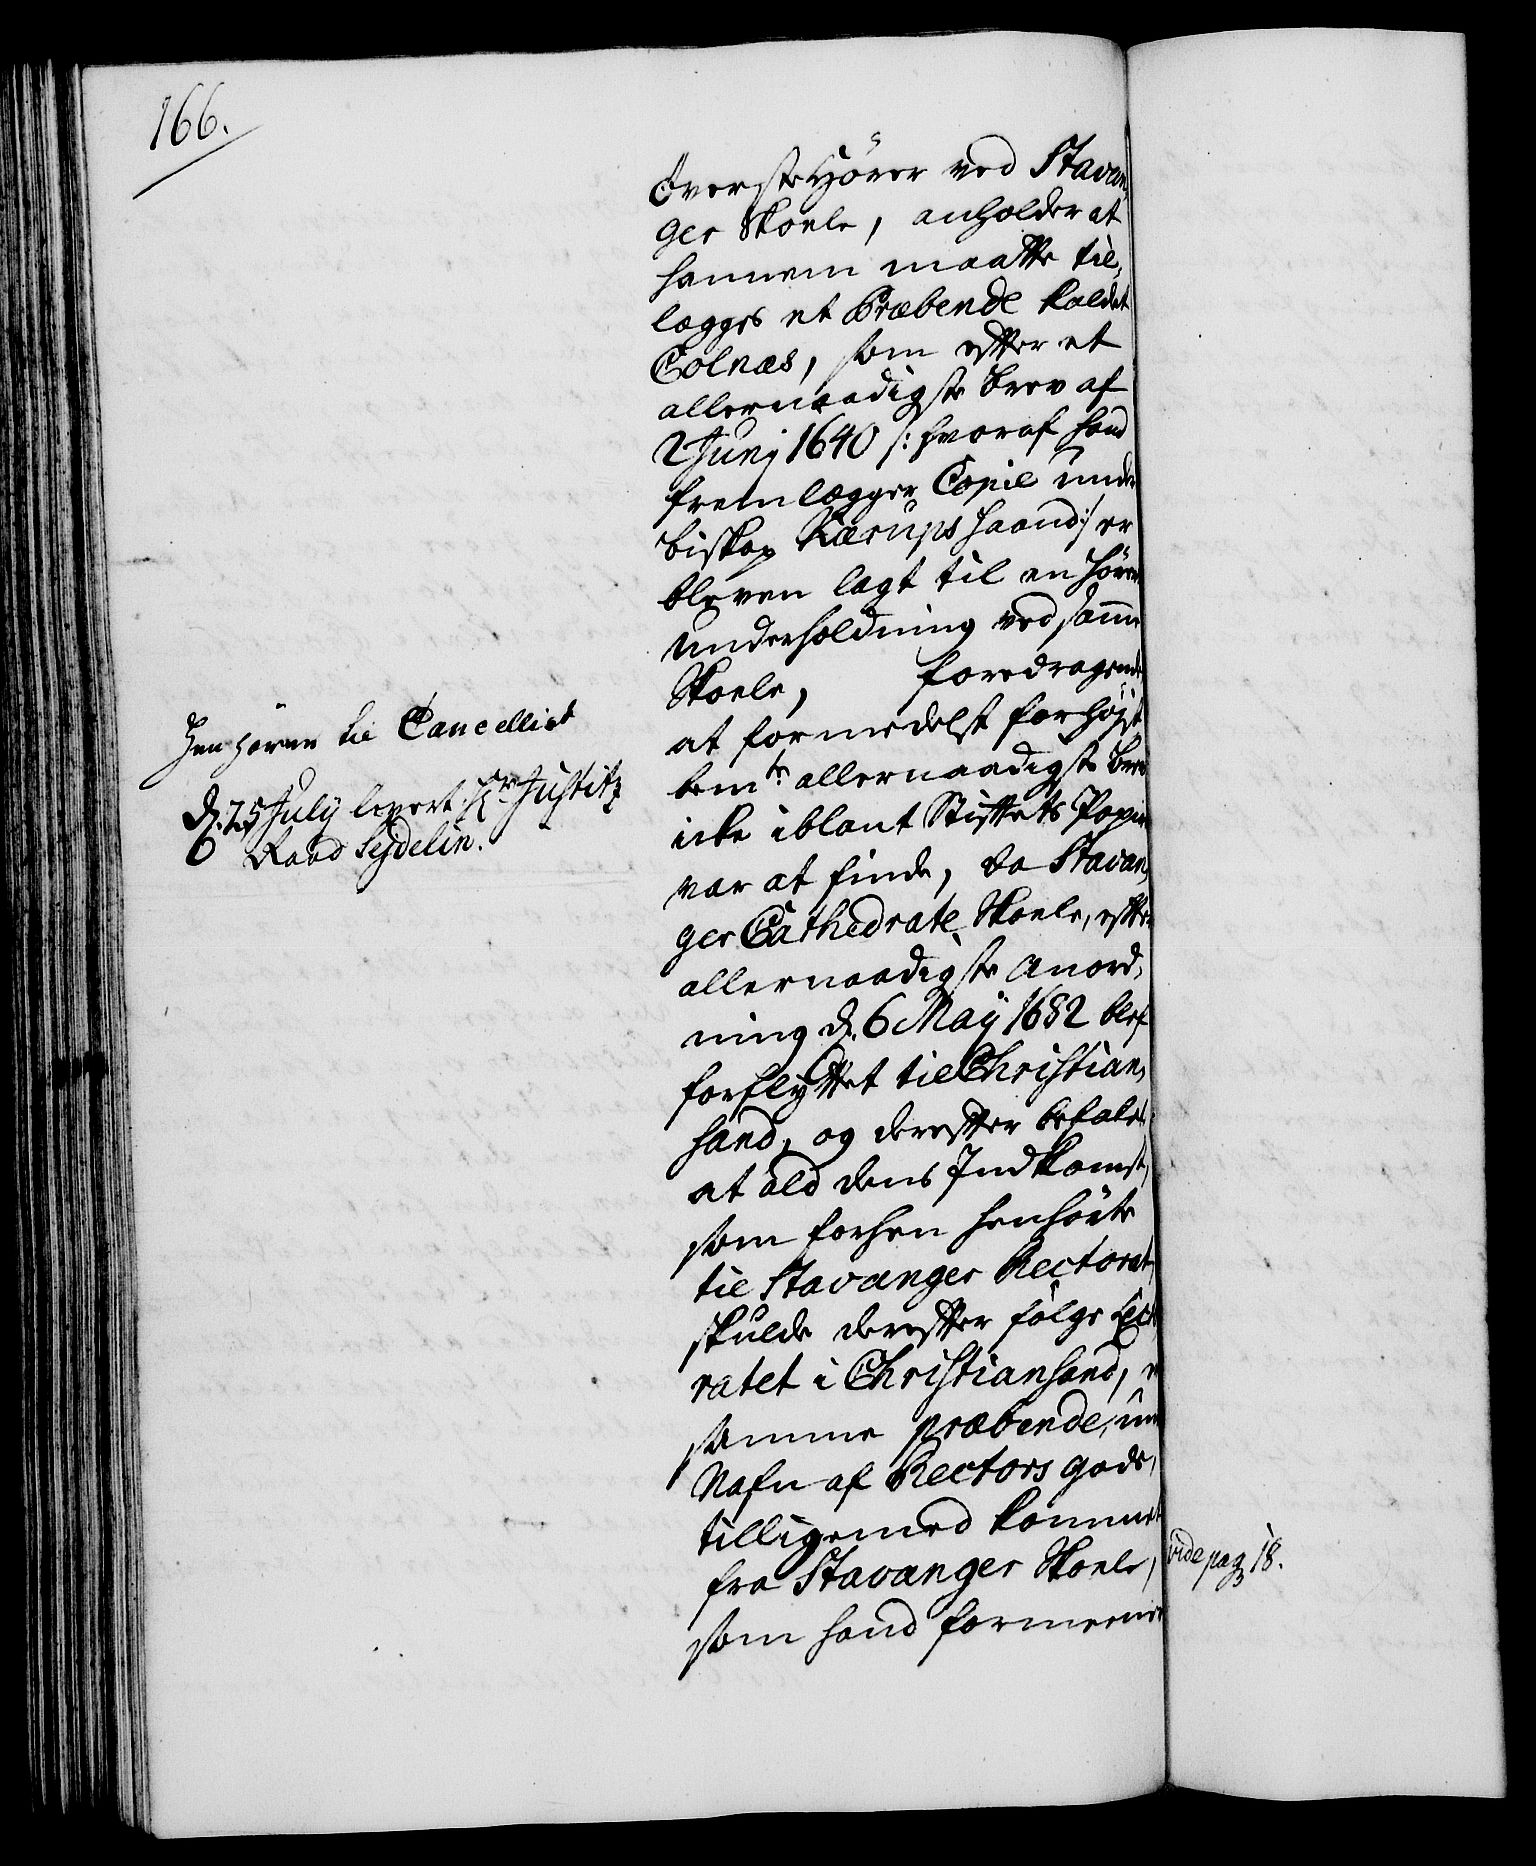 166.
Øverste Hörer ved Stavan,
ger Skoele, anholder at
hannem maatte til,
legges et Præbende kaldet
Golnæs, som efter et
allernaadigste brev af
2 Junj 1640 /: hvoraf hand
fremlægger Copie under
biskop Kærups haand :/ er
bleven lagt til en hörers
underholdning ved samme
Skoele, foredragende
at formedelst forhöjst
bemte allernaadigste brev
icke iblant Stiftets Papirer
var at finde, da Stavan,
ger Cathedrale Skoele, efter
allernaadigste Anord,
ning d. 6 May 1682 blef
forflyttet til Christian,
sand, og derefter befalet
at ald dens Indkomst,
som forhen henhörte
til Stavanger Rectorat,
skulde derefter fölge Recto
ratet i Christiansand, er
samme præbende, under
Nafn af Rectors gods,
tilligemed kommet
fra Stavanger Skoele,
som hand formeener
Henhörer til Cancelliet
d. 25 July levert Hr Justitz
Raad Seydelin.
vide pag 18.